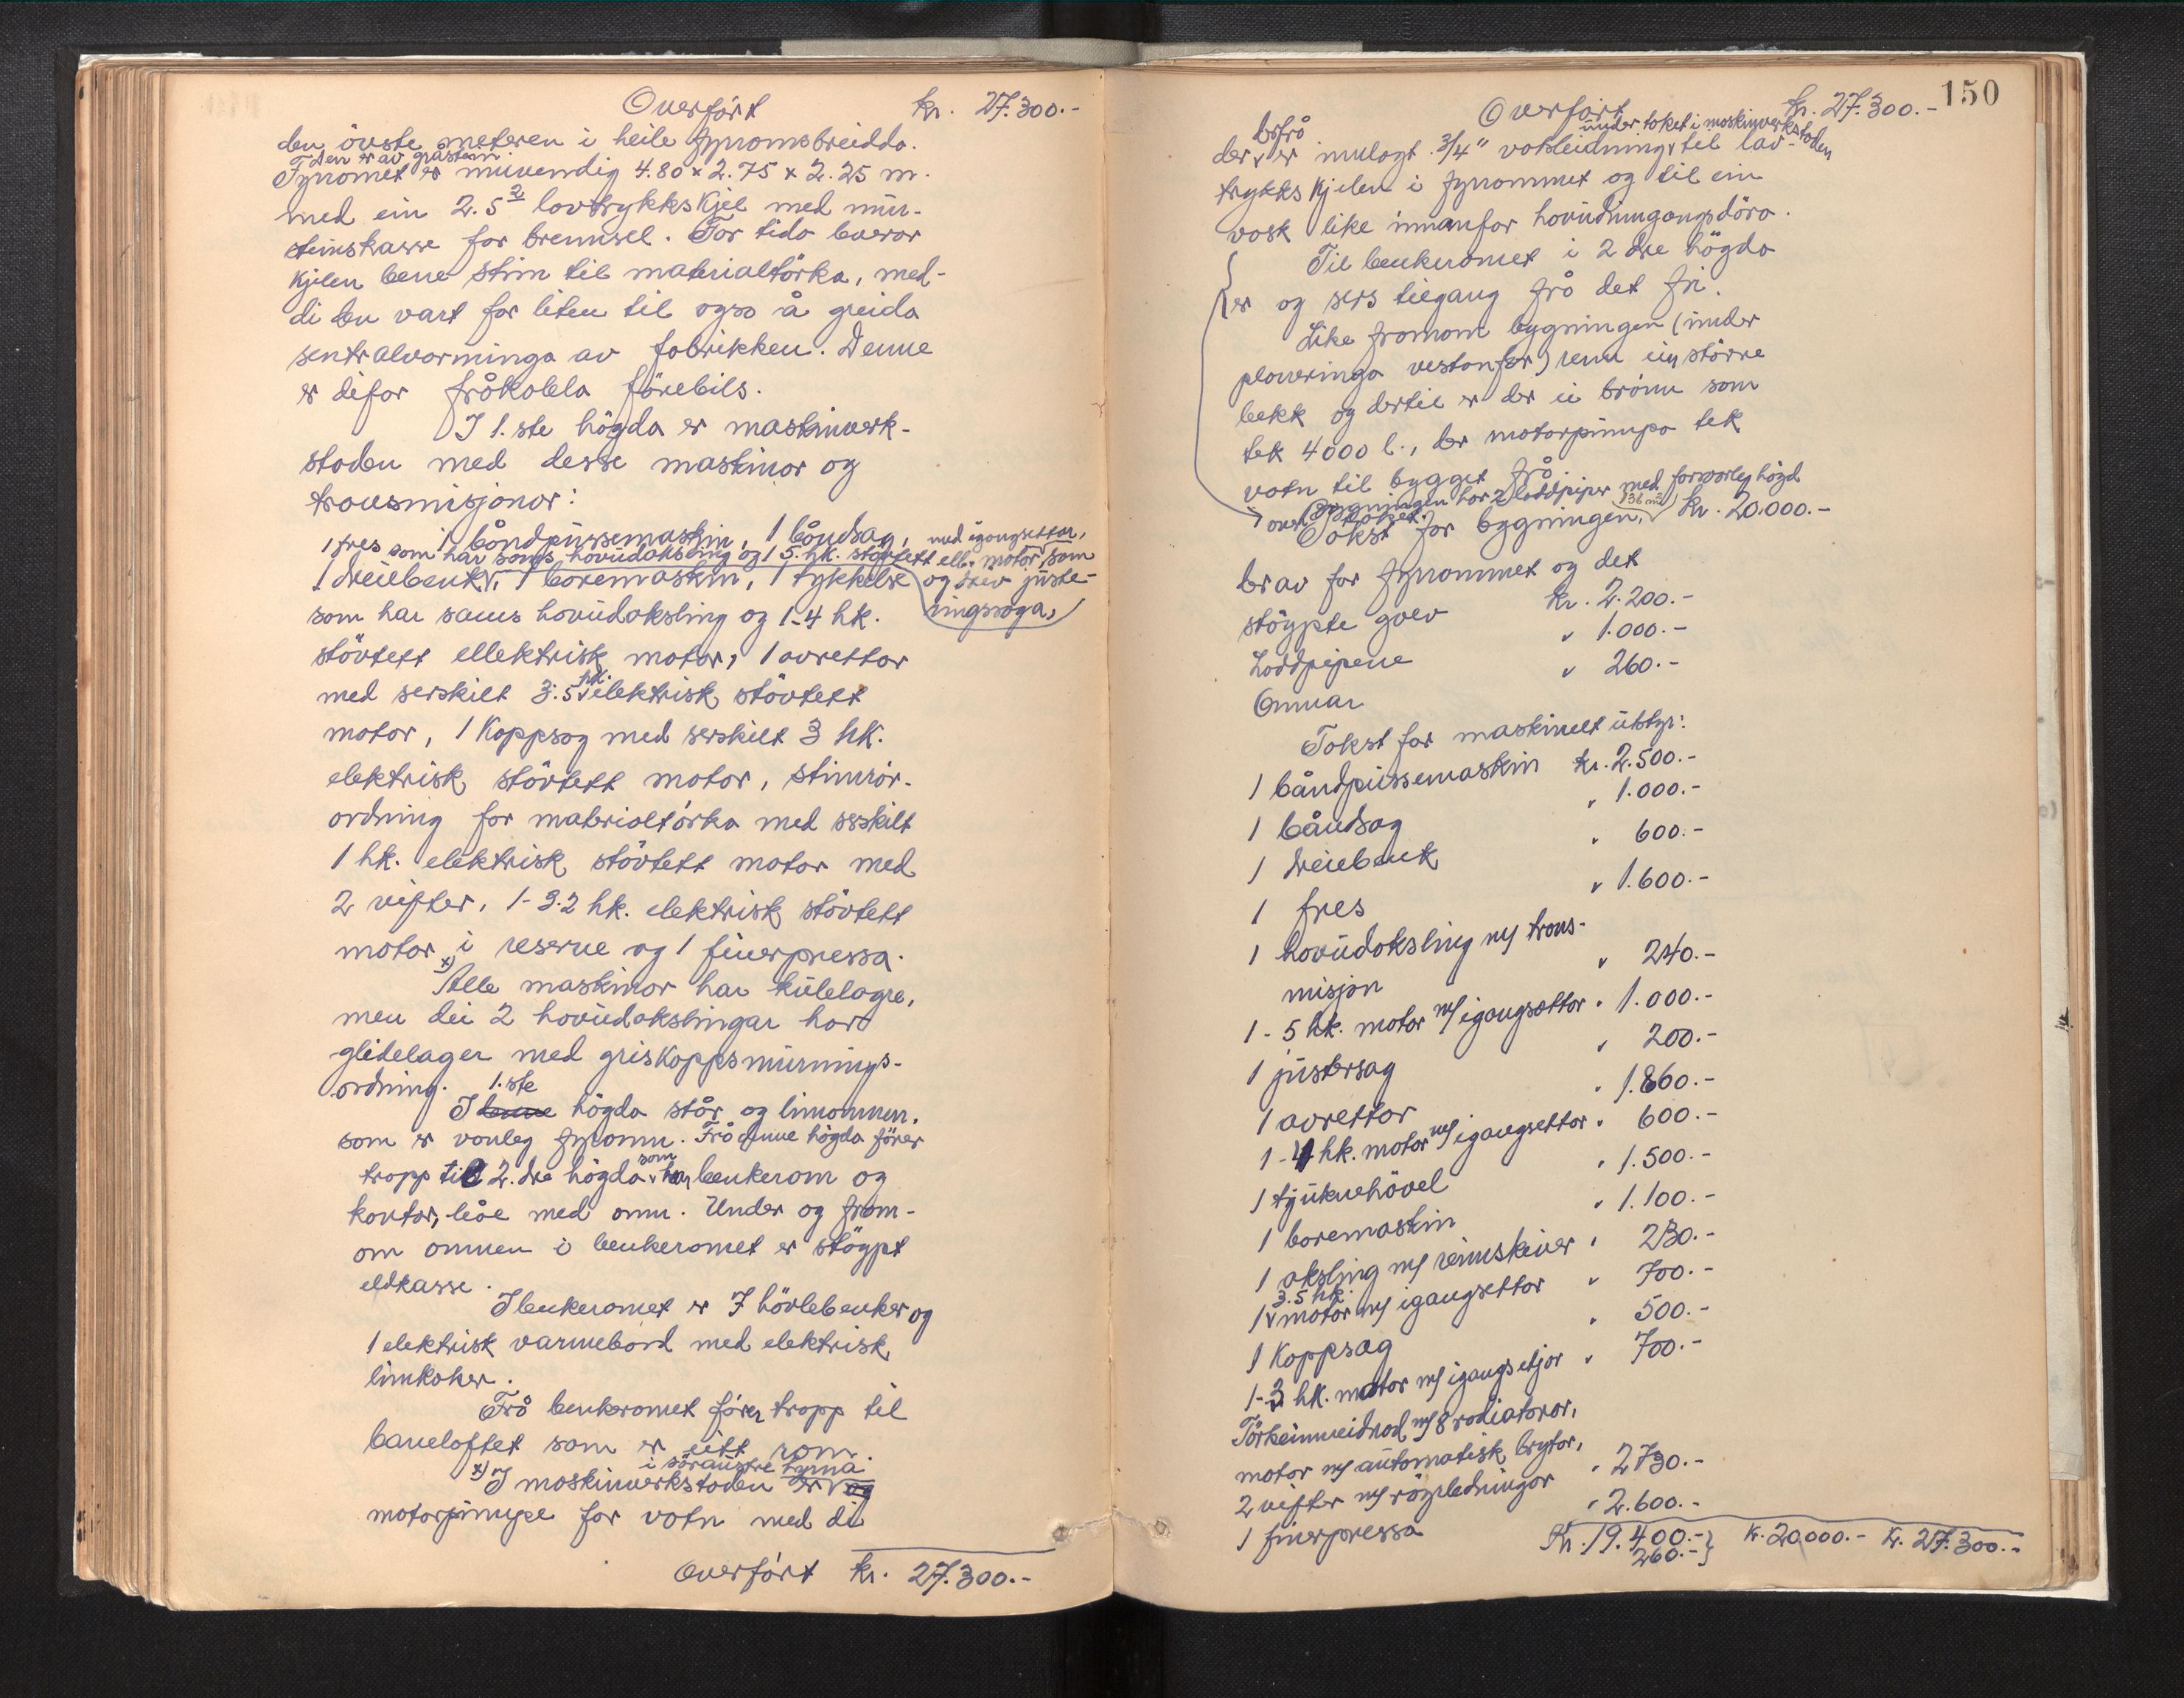 Overført kr. 27.300.-
den øvste meteren i heile fyromsbreidda.
Den er av gråstein
Fyromet er innvendig 4.80 x 2.75 x 2.25 m.
med ein 2.5 lavtrykks kjel med mur-
steinskasse for brennsel. For tida leverar
kjelen berre stim til materialtörka, med-
di den vart for liten til ogso å greida
sentralvarminga av fabrikken. Denne
er difor fråkobla förebils.
I 1. ste högda er maskinverk-
staden med desse maskinor og
transmisjonar:
1 båndpussemaskin, 1 båndsag, med igangsettar,
1 fres som har sams hovudaksling og 1 5. hk. stövtett ell. motor som
1 dreiebenk, 1 boremaskin, 1 tykkelse og drev juste-
som har sams hovudaksling og 1-4 hk. ringssaga,
stövtett ellektrisk motor, 1 avrettar
med serskilt 3.5 hk. elektrisk stövtett
motor, 1 Koppsag med serskilt 3 hk.
elektrisk stövtett motor, stimrör-
ordning for materialtörka med serskilt
1 hk. elektrisk stövtett motor med
2 vifter, 1-3.2 hk. elektrisk stövtett
motor i reserve og 1 finerpressa.
x) Alle maskinor har kulelagre,
men dei 2 hovudakslingar har
glidelager med griskoppsmurnings-
ordning.
I 1. ste högda står og limomnen,
som er vanleg fyromn. Frå denne högda förer
tropp til 2. dre högda som har benkerom og
kontor, båe med omn. Under og fram-
om omnen i benkeromet er stöypt
eldkasse.
I benkeromet er 7 hövlebenker og
1 elektrisk varmebord med elektrisk
limkoker.
Frå benkeromet förer tropp til
bareloftet som er eitt rom.
i söraustre hyrna
x) I maskinverkstaden er og
motorpumpe for vatn med di
Overført kr. 27.300.-
150
Overført kr. 27.300.-
derfrå under taket i maskinverkstaden
der er innlagt 3/4" vatsleidning til lav-
trykks kjelen i fyrommet og til ein
vask like innanfor hovudinngangsdöra.
Til benkeromet i 2 dre högda
er og sers tilgang frå det fri.
Like framom bygningen (under
planeringa vestanfor) renn ein större
bekk og dertil er der ei brönn som
tek 4000 l., der motorpumpa tek
vatn til bygget frå.
Bygningen har 2 loddpiper med forsvarleg högd
over taket.
Takst for bygningen, 136 m2 kr. 20.000.-
derav for fyrommet og det
stöypte golv kr. 2.200.-
Loddpipene " 1.000.-
Omnar " 260.-
Takst for maskinelt utstyr:
1 båndpussemaskin kr. 2.500.-
1 båndsag " 1.000.-
1 dreiebenk " 600.-
1 fres " 1.600.-
1 hovudaksling m/ trans-
misjon " 240.-
1 - 5 hk. motor m/ igangsettar " 1.000.-
1 justersag " 200.-
1 avrettar " 1.860.-
1-4 hk. motor m/ igangsettar " 600.-
1 tjuknehövel " 1.500.-
1 boremaskin " 1.100.-
1 aksling m/ reimskiver " 230.-
3.5 hk.
1 motor m/ igangsettar " 700.-
1 Koppsag " 500.-
1-3 hk. motor m/ igangsetjar " 700.-
m/ 8 radiatorar,
motor m/ automatisk brytar,
2 vifter m/ röyrledningar " 2730.-
1 finerpressa " 2.600.-
Kr. 19.400.- kr. 20.000.- kr. 27.300.-
260.-